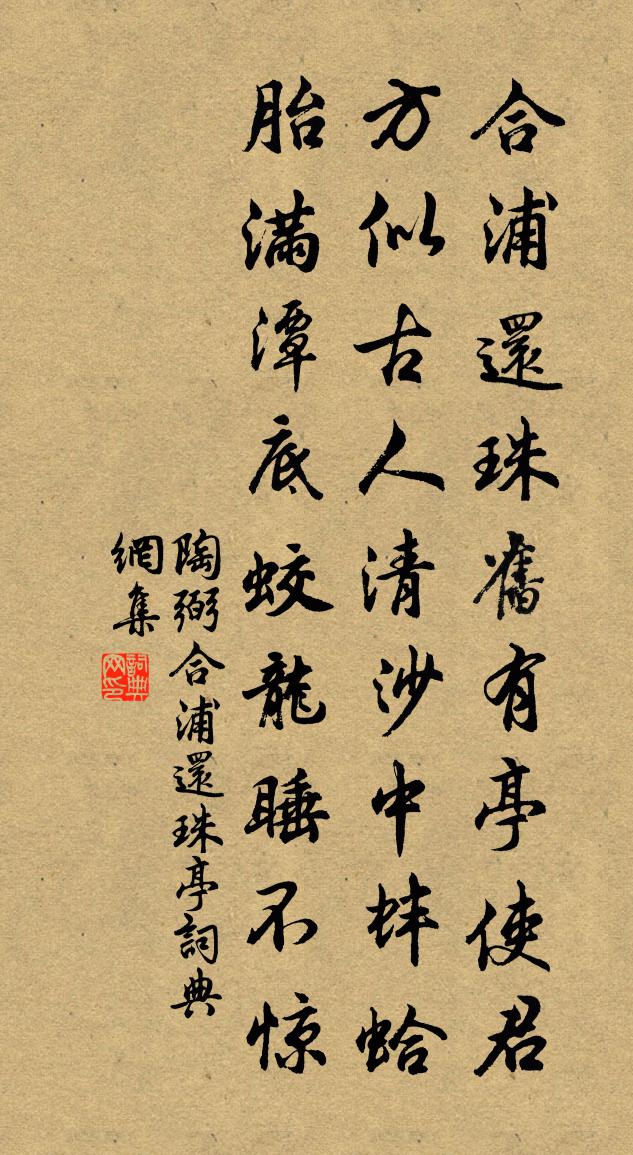 合浦還珠舊有亭使君
方似古人清沙中蚌蛤
胎滿潭底蛟龍睡不惊
陶弼合浦還珠亭詞典
網集
詞典網印